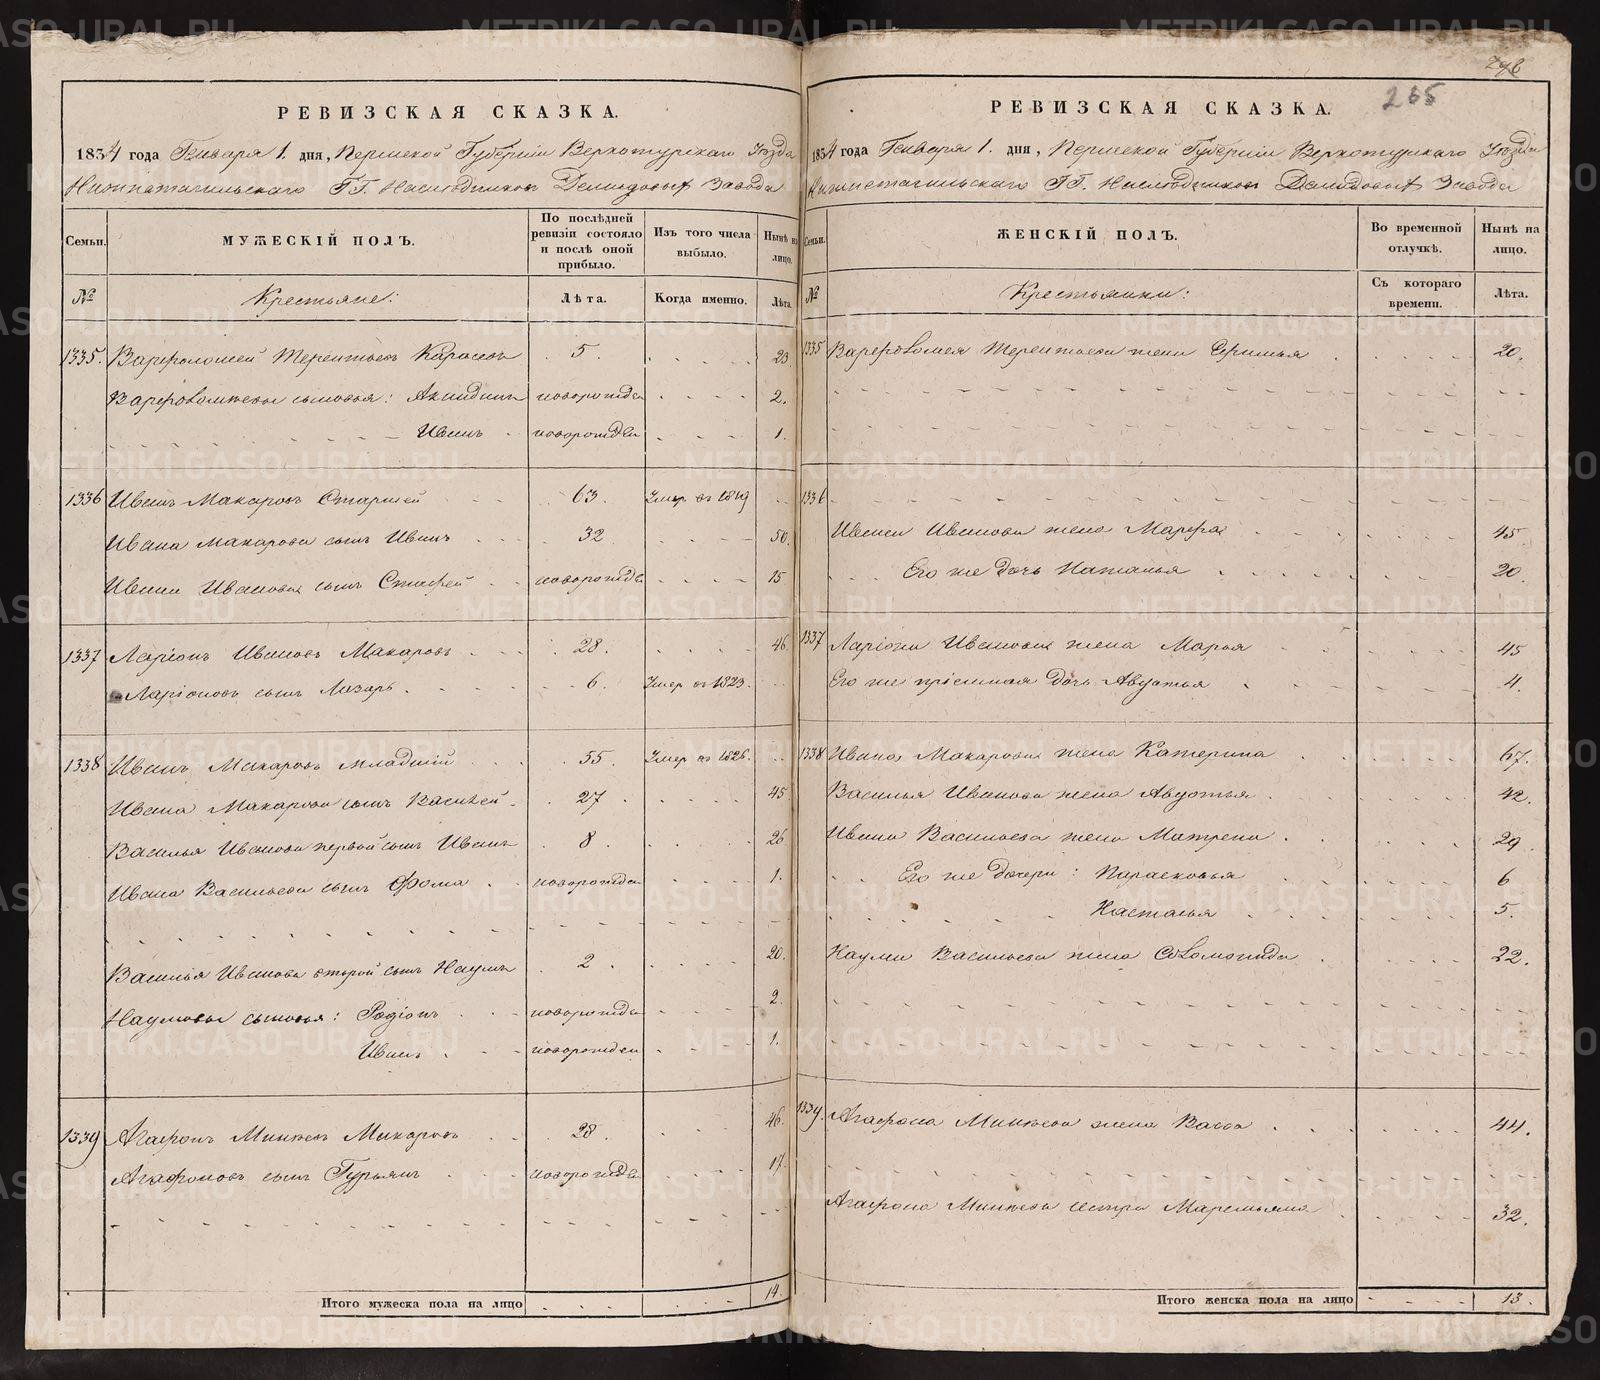 РЕВИЗСКАЯ СКАЗКА.
1834 года Генваря 1. дня, Пермской Губерніи Верхотурскаго Уѣзда
Нижнетагильскаго Г.Г. Наслѣдниковъ Демидовыхъ Завода
Семьи. МУЖЕСКІЙ ПОЛЪ. По послѣдней ревизіи состояло и послѣ оной прибыло. Изъ того числа выбыло. Нынѣ на лицо.
№ Крестьяне: Лѣта. Когда именно. Лѣта.
1335. Варфоломей Терентьевъ 5. 23.
Варфоломѣевы сыновья: Акиндинъ новорожде 2.
Иванъ новорожден 1.
1336 Иванъ Макаровъ Старшей 63. Умер въ 1819
Ивана Макарова сынъ Иванъ 32 50.
Ивана Иванова сынъ новорожде 15
1337 Ларіонъ Ивановъ Макаровъ 28. 46.
Ларіоновъ сынъ Лазарь 6. Умер въ 1823.
1338 Иванъ Макаровъ младшій 55. Умер въ 1826.
Ивана Макарова сынъ Василей 27 45
Василья Иванова первой сынъ Иванъ 8 26
Ивана Васильева сынъ Фома новорожден 1.
Василья Иванова второй сынъ Наумъ 2 20.
Наумовы сыновья: Родіонъ новорожде 2.
Иванъ новорожден 1.
1339 Агафонъ Минѣевъ Макаровъ 28. 46.
Агафоновъ сынъ Гурьянъ новорожде 17.
Итого мужеска пола на лицо 14.
296
265
РЕВИЗСКАЯ СКАЗКА.
1834 года Генваря 1. дня, Пермской Губерніи Верхотурскаго Уѣзда
Нижнетагильскаго Г.Г. Наслѣдниковъ Демидовыхъ Завода
Семьи. ЖЕНСКІЙ ПОЛЪ. Во временной отлучкѣ. Нынѣ на лицо.
№ Крестьянки: Съ котораго времени. Лѣта.
1335 Варфоломея Терентьева жена 20.
1336
Ивана Иванова жена Марфа 45
Его же дочь Наталья 20.
1337 Ларіона Иванова жена Марья 45
Его же пріемная дочь Авдотья 4.
1338 Ивана Макарова жена Катерина 67.
Василья Иванова жена Авдотья 42.
Ивана Васильева жена Матрена 29.
Его же дочери: Парасковья 6
Настасья 5.
Наума Васильева жена Соломонида 22.
1339. Агафона Минѣева жена Васса 44.
Агафона Минѣева сестра Маремьяна 32.
Итого женска пола на лицо 13.
METRIKI.GASO-URAL.RU